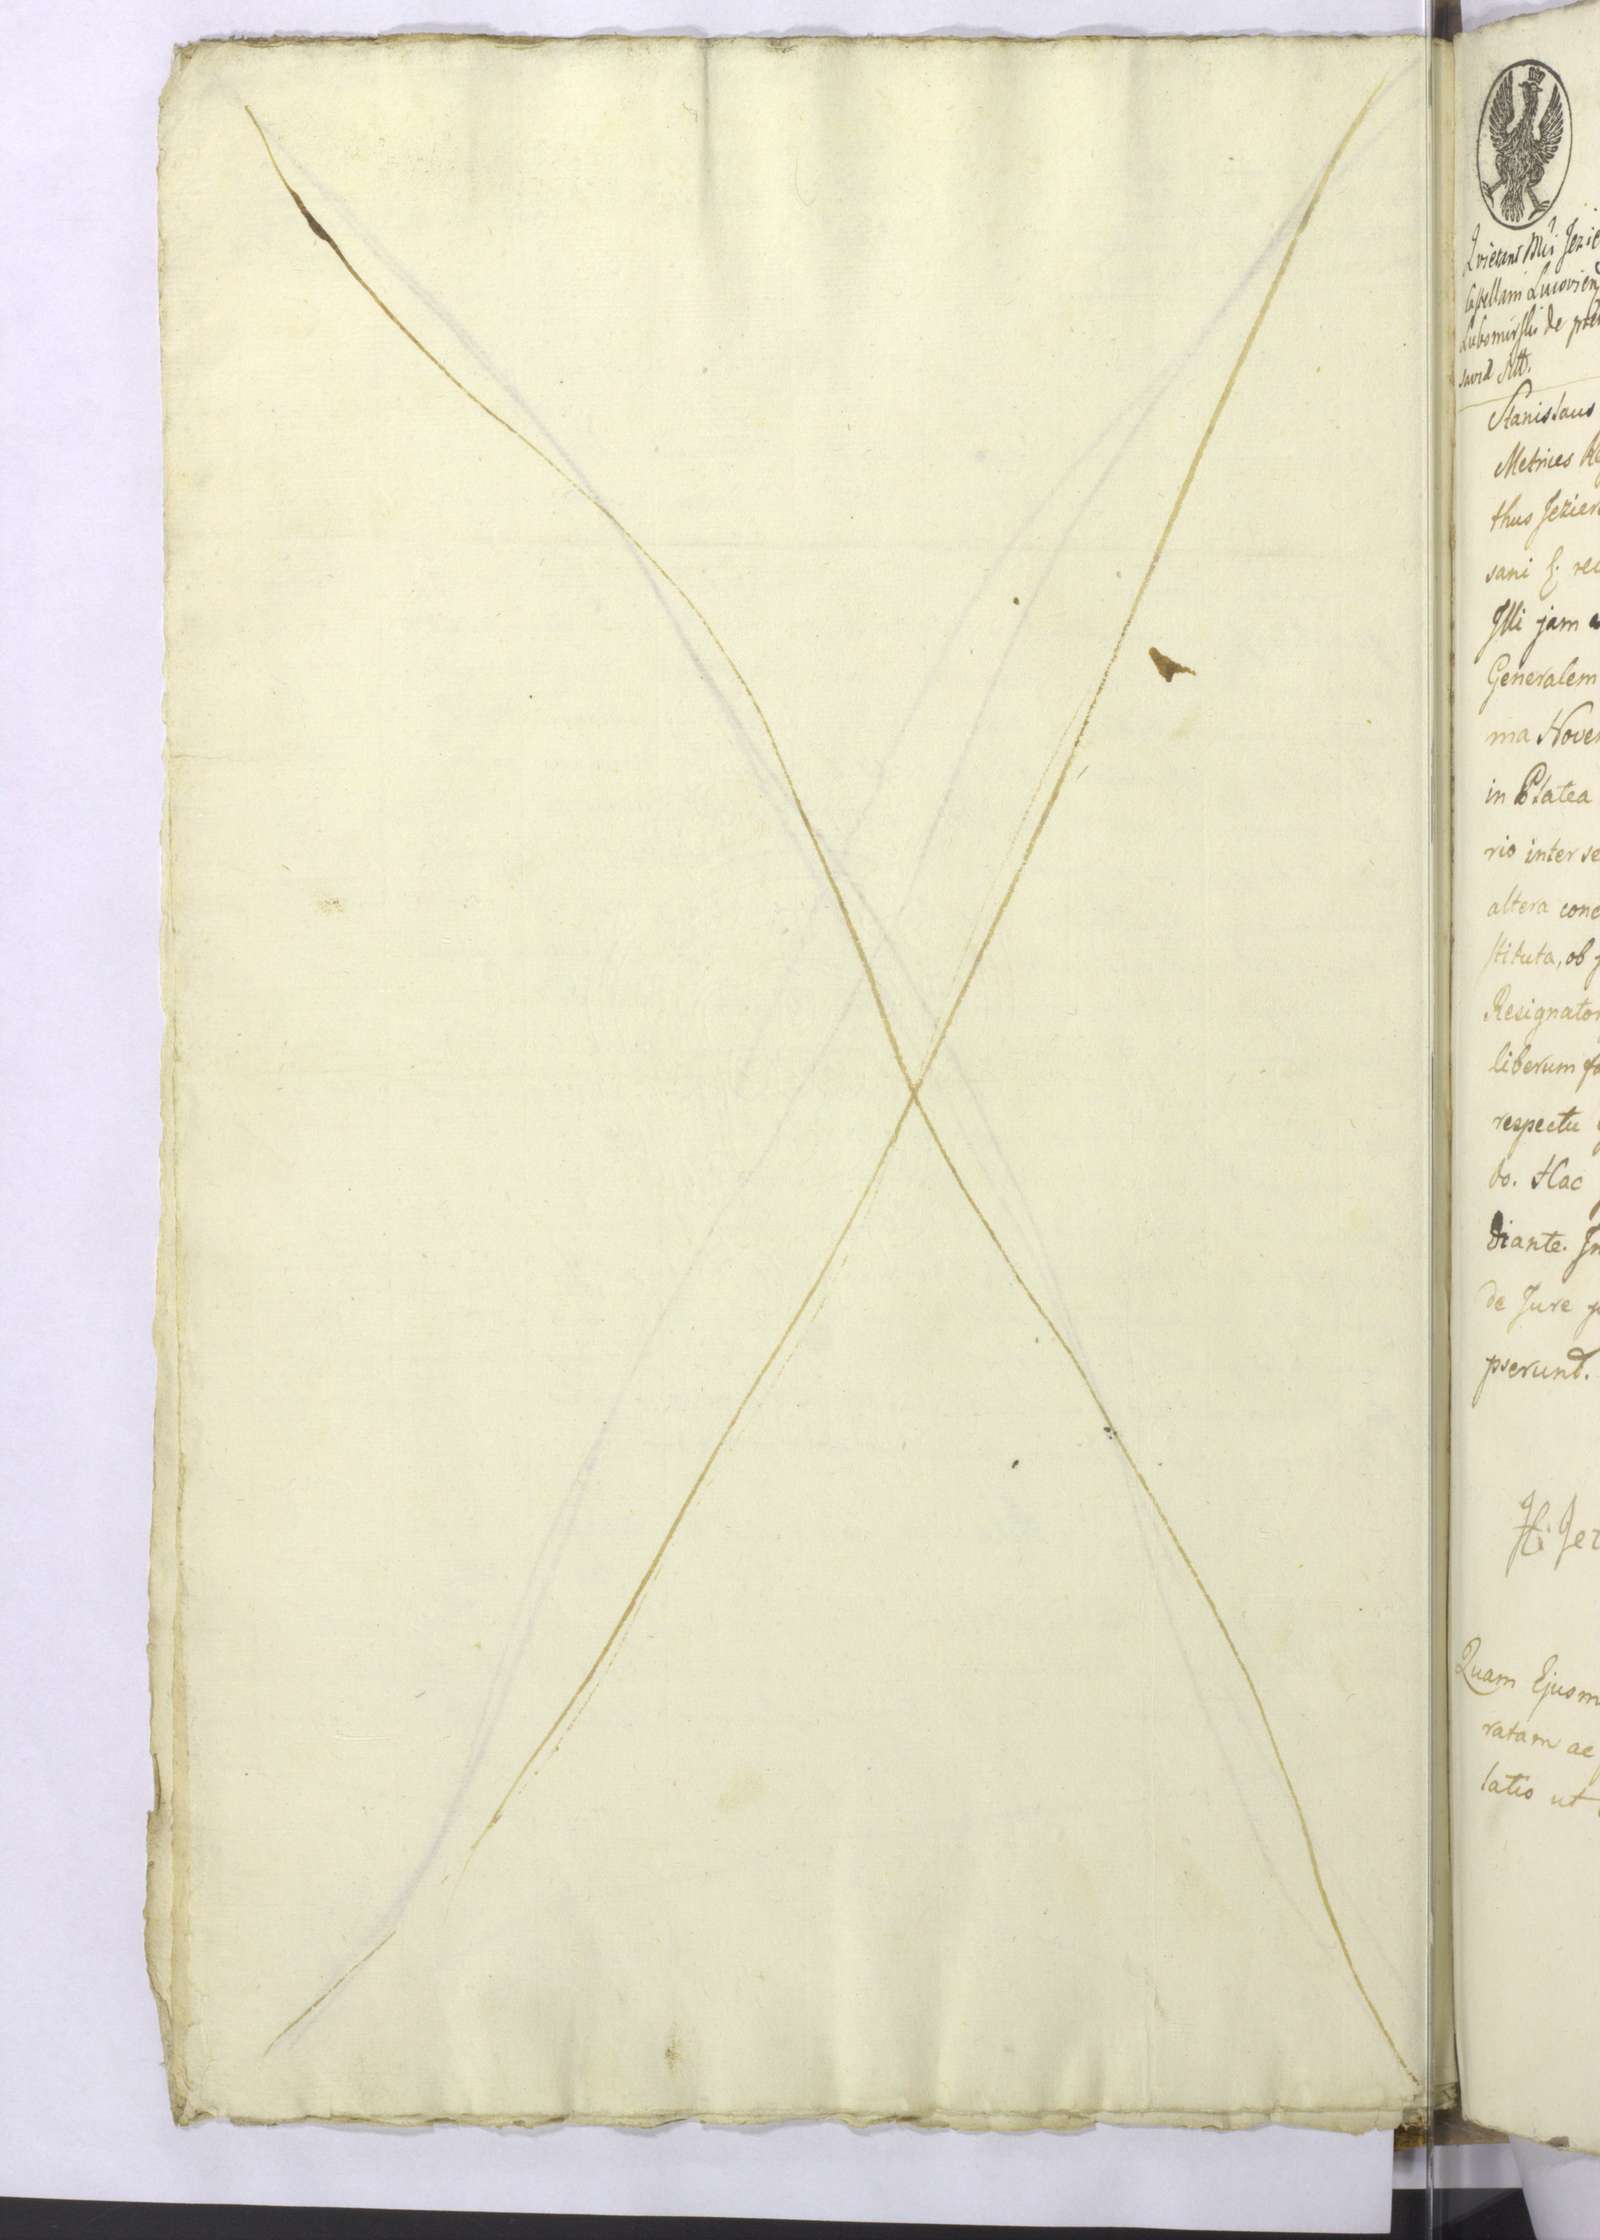 Quietant Jezie
Castellani Lucovien
Lubomirski de
Stanislaus
Metrices
thus Jezier
sani
Illi jam
Generalem
ma Nove
in Platea
rio inter se
altera conc
stituta, ob
Resignator
liberum
respectu
do. Hac
diante. In
de Jure
pserunt.
Jez
Quam Ejusm
ratam ac
latio ut